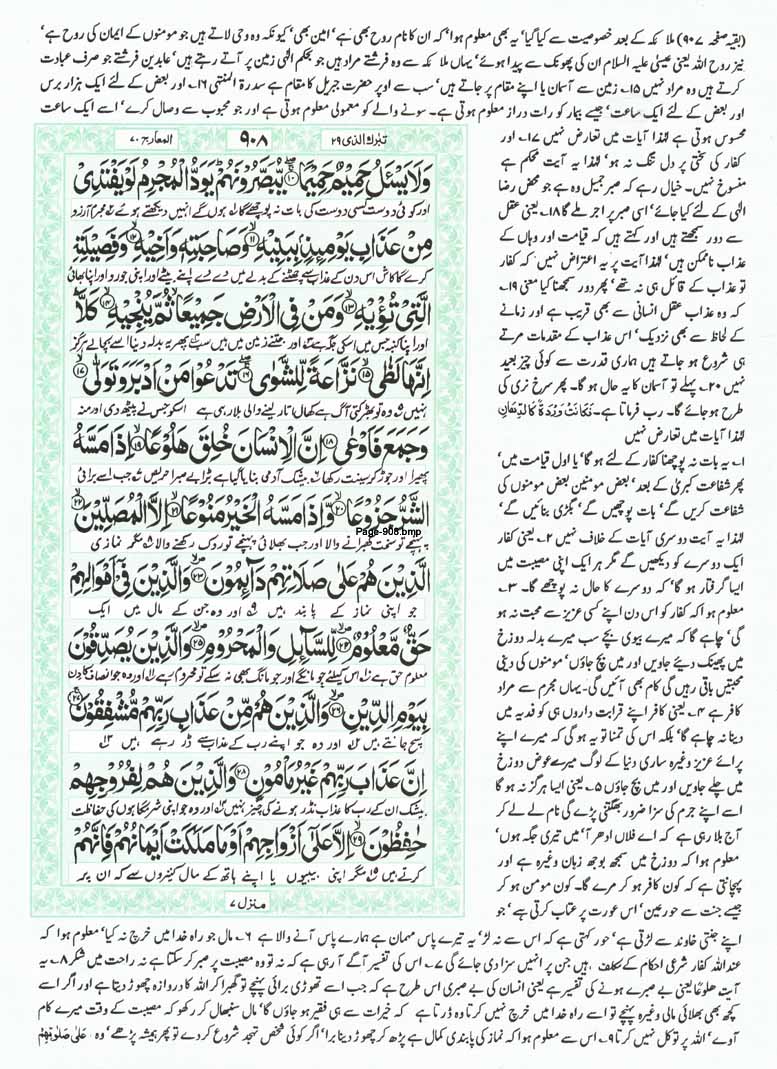 (بقیہ صفحہ ۹۰۷) ملائکہ کے بعد خصوصیت سے کیا گیا' یہ بھی معلوم ہوا' کہ ان کا نام روح بھی ہے' امین بھی' کیونکہ وہ وحی لاتے ہیں جو مومنوں کے ایمان کی روح ہے'
نیز روح اللہ یعنی عیسیٰ علیہ السلام ان کی پھونک سے پیدا ہوئے' یہاں ملائکہ سے وہ فرشتے مراد ہیں جو بحکم الٰہی زمین پر آتے رہتے ہیں' عابدین فرشتے جو صرف عبادت
کرتے ہیں وہ مراد نہیں ۱۵۔ زمین سے آسمان یا اپنے مقام پر جاتے ہیں' سب سے اوپر حضرت جبریل کا مقام ہے سدرۃ المنتہٰی ۱۶۔ اور بعض کے لئے ایک ہزار برس
اور بعض کے لئے ایک ساعت' جیسے بیمار کو رات دراز معلوم ہوتی ہے۔ سونے والے کو معمولی معلوم ہوتی ہے اور جو محبوب سے وصال کرے' اسے ایک ساعت
محسوس ہوتی ہے لہٰذا آیات میں تعارض نہیں ۱۷۔ اور
کفار کی سختی پر دل تنگ نہ ہو' لہٰذا یہ آیت محکم ہے
منسوخ نہیں۔ خیال رہے کہ صبر جمیل وہ ہے جو محض رضا
الٰہی کے لئے کیا جائے' اسی صبر پر اجر ملے گا ۱۸۔ یعنی عقل
سے دور سمجھتے ہیں اور کہتے ہیں کہ قیامت اور وہاں کے
عذاب ناممکن ہیں' لہٰذا آیت پر یہ اعتراض نہیں' کہ کفار
تو عذاب کے قائل ہی نہ تھے' پھر دور سمجھنا کیا معنی ۱۹۔
کہ وہ عذاب عقل انسانی سے بھی قریب ہے اور زمانے
کے لحاظ سے بھی نزدیک' اس عذاب کے مقدمات مرتے
ہی شروع ہو جاتے ہیں ہماری قدرت سے کوئی چیز بعید
نہیں ۲۰۔ پہلے تو آسمان کا یہ حال ہو گا۔ پھر سرخ نری کی
طرح ہو جائے گا۔ رب فرماتا ہے۔ فَکَانَتْ وَرْدَۃً کَالدِّھَانِ
لہٰذا آیات میں تعارض نہیں
۱۔ یہ بات نہ پوچھنا کفار کے لئے ہو گا' یا اول قیامت میں'
پھر شفاعت کبریٰ کے بعد' بعض مومنین بعض مومنوں کی
شفاعت کریں گے' بات پوچھیں گے' بگڑی بنائیں گے'
لہٰذا یہ آیت دوسری آیات کے خلاف نہیں ۲۔ یعنی کفار
ایک دوسرے کو دیکھیں گے مگر ہر ایک اپنی مصیبت میں
ایسا گرفتار ہو گا' کہ دوسرے کا حال نہ پوچھے گا۔ ۳۔
معلوم ہوا کہ کفار کو اس دن اپنے کسی عزیز سے محبت نہ ہو
گی' چاہے گا کہ میرے بیوی بچے سب میرے بدلہ دوزخ
میں پھینک دیئے جاویں اور میں بچ جاؤں' مومنوں کی دینی
محبتیں باقی رہیں گی کام بھی آئیں گی۔ یہاں مجرم سے مراد
کافر ہے ۴۔ یعنی کافر اپنے قرابت داروں ہی کو فدیہ میں
دینا نہ چاہے گا' بلکہ اس کی تمنا تو یہ ہو گی کہ میرے اپنے
پرائے عزیز وغیرہ ساری دنیا کے لوگ میرے عوض دوزخ
میں چلے جاویں اور میں بچ جاؤں ۵۔ یعنی ایسا ہرگز نہ ہو گا
اسے اپنے جرم کی سزا ضرور بھگتنی پڑے گی نام لے لے کر
آج بلا رہی ہے کہ اے فلاں ادھر آ' میں تیری جگہ ہوں'
معلوم ہوا کہ دوزخ میں سمجھ بوجھ زبان وغیرہ ہے اور
پہچانتی ہے کہ کون کافر ہو کر مرے گا۔ کون مومن ہو کر
جیسے جنت سے حور عین' اس عورت پر عتاب کرتی ہے' جو
تبٰرک الذی ۲۹ ۹۰۸ المعارج ۷۰
وَلَا یَسْئَلُ حَمِیْمٌ حَمِیْمًا ﴿۱۰﴾ یُّبَصَّرُوْنَھُمْ ؕ یَوَدُّ الْمُجْرِمُ لَوْ یَفْتَدِیْ
اور کوئی دوست کسی دوست کی بات نہ پوچھے گا ہوں گے انہیں دیکھتے ہوئے مجرم آرزو
مِنْ عَذَابِ یَوْمِئِذٍۭ بِبَنِیْہِ ﴿۱۱﴾ وَصَاحِبَتِہٖ وَاَخِیْہِ ﴿۱۲﴾ وَفَصِیْلَتِہِ
کرے گا کاش اس دن کے عذاب سے چھٹنے کے بدلے میں دے دے اپنے بیٹے اور اپنی جورو اور اپنا بھائی
الَّتِیْ تُـْٔوِیْہِ ﴿۱۳﴾ وَمَنْ فِی الْاَرْضِ جَمِیْعًا ثُمَّ یُنْجِیْہِ ﴿۱۴﴾ کَلَّا
اور اپنا کنبہ جس میں اسکی جگہ ہے اور جتنے زمین میں ہیں سب پھر یہ بدلہ دینا اسے بچا لے ہرگز
اِنَّھَا لَظٰی ﴿۱۵﴾ نَزَّاعَۃً لِّلشَّوٰی ﴿۱۶﴾ تَدْعُوْا مَنْ اَدْبَرَ وَتَوَلّٰی ﴿۱۷﴾
نہیں وہ تو بھڑکتی آگ ہے کھال اتار لینے والی بلا رہی ہے اسکو جس نے پیٹھ دی اور منہ
وَجَمَعَ فَاَوْعٰی ﴿۱۸﴾ اِنَّ الْاِنْسَانَ خُلِقَ ھَلُوْعًا ﴿۱۹﴾ اِذَا مَسَّہُ
پھیرا اور جوڑ کر سینت رکھا بیشک آدمی بنایا گیا ہے بڑا بے صبرا حریص جب اسے برائی
الشَّرُّ جَزُوْعًا ﴿۲۰﴾ وَّاِذَا مَسَّہُ الْخَیْرُ مَنُوْعًا ﴿۲۱﴾ اِلَّا الْمُصَلِّیْنَ ﴿۲۲﴾
پہنچے تو سخت گھبرانے والا اور جب بھلائی پہنچے تو روک رکھنے والا مگر نمازی
Page-908.bmp
الَّذِیْنَ ھُمْ عَلٰی صَلَاتِھِمْ دَآئِمُوْنَ ﴿۲۳﴾ وَالَّذِیْنَ فِیْۤ اَمْوَالِھِمْ
جو اپنی نماز کے پابند ہیں اور وہ جن کے مال میں ایک
حَقٌّ مَّعْلُوْمٌ ﴿۲۴﴾ لِّلسَّآئِلِ وَالْمَحْرُوْمِ ﴿۲۵﴾ وَالَّذِیْنَ یُصَدِّقُوْنَ
معلوم حق ہے اس کیلئے جو مانگے اور جو مانگ بھی نہ سکے تو محروم رہے اور وہ جو انصاف کا دن
بِیَوْمِ الدِّیْنِ ﴿۲۶﴾ وَالَّذِیْنَ ھُمْ مِّنْ عَذَابِ رَبِّھِمْ مُّشْفِقُوْنَ ﴿۲۷﴾
سچ جانتے ہیں اور وہ جو اپنے رب کے عذاب سے ڈر رہے ہیں
اِنَّ عَذَابَ رَبِّھِمْ غَیْرُ مَاْمُوْنٍ ﴿۲۸﴾ وَالَّذِیْنَ ھُمْ لِفُرُوْجِھِمْ
بیشک ان کے رب کا عذاب نڈر ہونے کی چیز نہیں اور وہ جو اپنی شرمگاہوں کی حفاظت
حٰفِظُوْنَ ﴿۲۹﴾ اِلَّا عَلٰۤی اَزْوَاجِھِمْ اَوْ مَا مَلَکَتْ اَیْمَانُھُمْ فَاِنَّھُمْ
کرتے ہیں مگر اپنی بیبیوں یا اپنے ہاتھ کے مال کنیزوں سے کہ ان پر
منزل ۷
اپنے جنتی خاوند سے لڑتی ہے' حور کہتی ہے کہ اس سے نہ لڑ' یہ تیرے پاس مہمان ہے ہمارے پاس آنے والا ہے ۶۔ مال جو راہ خدا میں خرچ نہ کیا' معلوم ہوا کہ
عند اللہ کفار شرعی احکام کے مکلف ہیں جن پر انہیں سزا دی جائے گی ۷۔ اس کی تفسیر آگے آ رہی ہے کہ نہ تو وہ مصیبت پر صبر کر سکتا ہے نہ راحت میں شکر ۸۔ یہ
آیت ھلوعا یعنی بے صبرے ہونے کی تفسیر ہے یعنی انسان کی بے صبری اس طرح ہے کہ جب اسے تھوڑی برائی پہنچے تو گھبرا کر اللہ کا دروازہ چھوڑ دیتا ہے اور اگر اسے
کچھ بھی بھلائی مالی وغیرہ پہنچے تو اسے راہ خدا میں خرچ نہیں کرتا وہ ڈرتا ہے کہ خیرات سے ہی فقیر ہو جاؤں گا' مال سنبھال کر رکھو کہ مصیبت کے وقت میرے کام
آوے' اللہ پر توکل نہیں کرتا ۹۔ اس سے معلوم ہوا کہ نماز کی پابندی کمال ہے پڑھ کر چھوڑ دینا برا' اگر کوئی شخص تہجد شروع کر دے تو پھر ہمیشہ پڑھے' وہ عَلٰی صَلٰوتِھِمْ